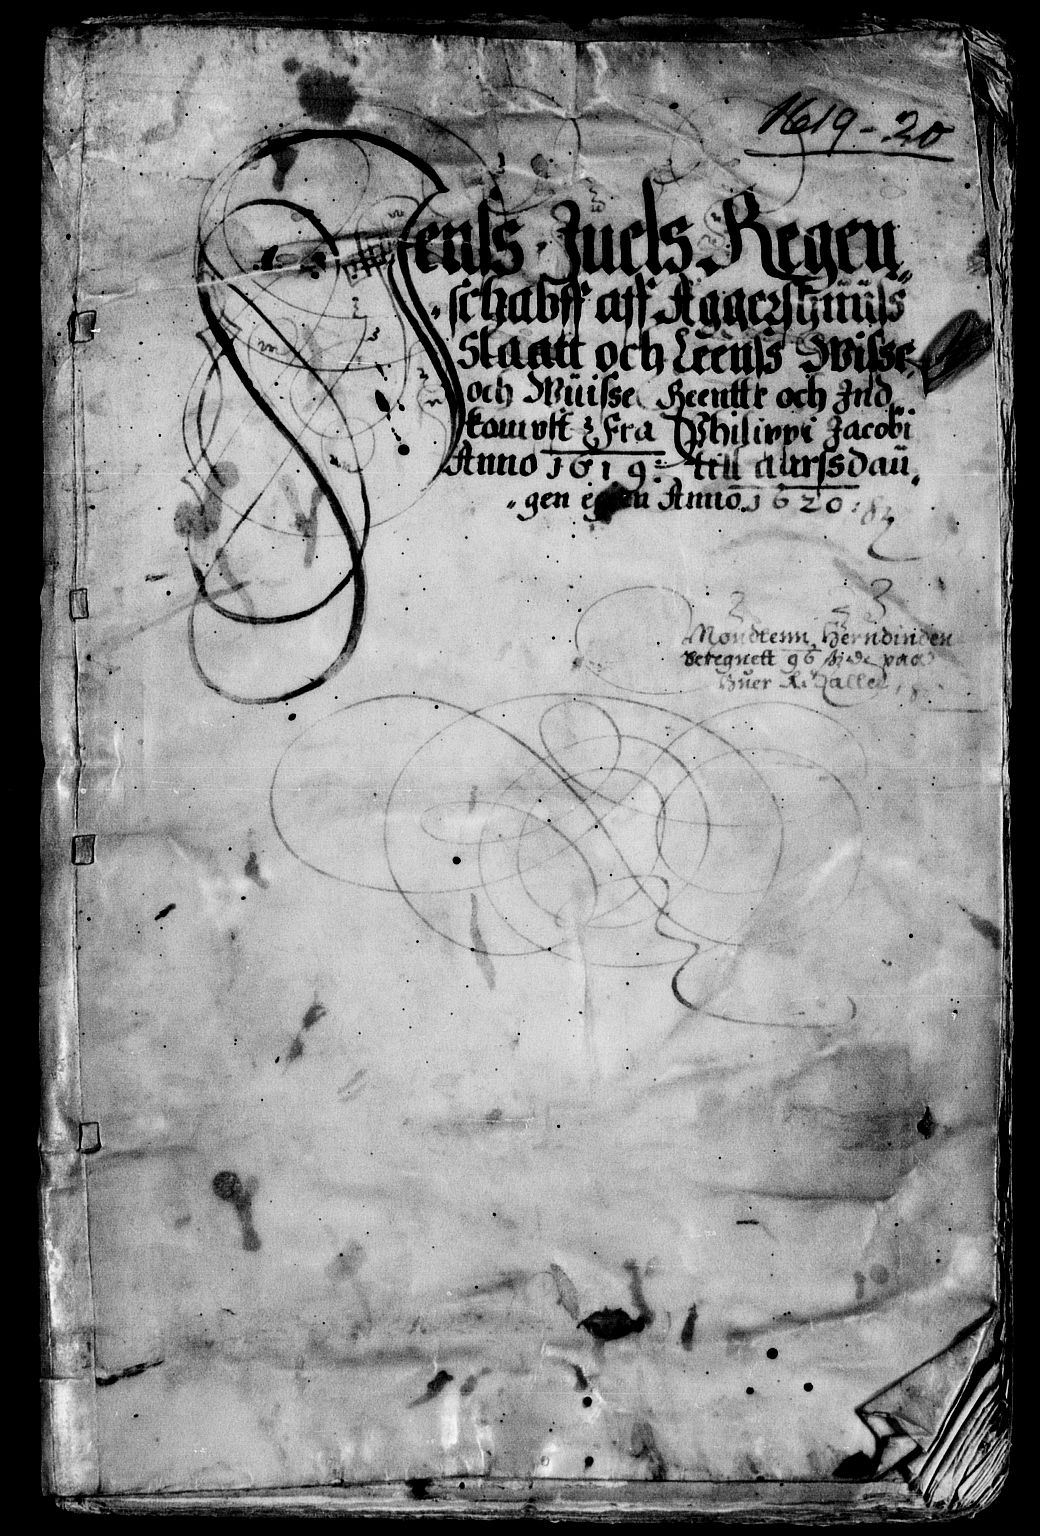 1619-20
Jenls Juels Regen
schabff aff Aggershuuls
Slaatt och Leenls Wisse
och Wüisse Reentte och Ind
kompst Fra Philippi Jacobi
Anno 1619: till aarssdau
gen igien Anno 1620:
Mondtenn Herudinden
beregnett 96 paa
huer R: daller,